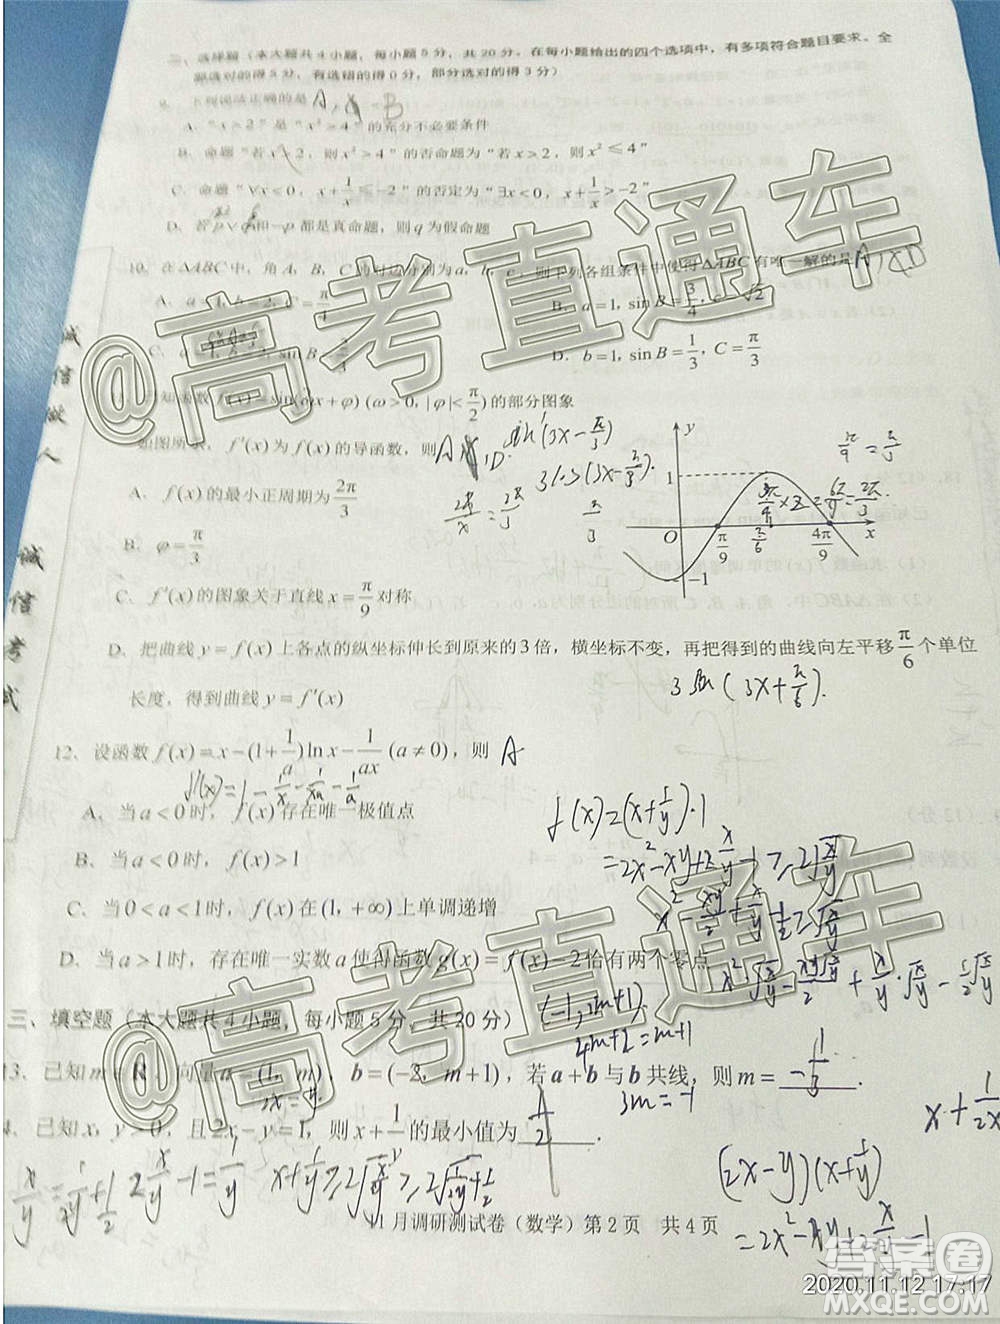 二、选择题（本大题共4小题，每小题5分，共20分。在每小题给出的四个选项中，有多项符合题目要求。全
部选对的得5分，有选错的得0分，部分选对的得3分）
9. 下列说法正确的是 A, B
A. “x>2”是“x²>4”的充分不必要条件
B. 命题“若x>2，则x²>4”的否命题为“若x>2，则x²≤4”
C. 命题“∀x<0，x+1/x≤-2”的否定为“∃x<0，x+1/x>-2”
D. 若p∨q和¬p都是真命题，则q为假命题
10. 在△ABC中，角A，B，C的对边分别为a，b，c，则下列各组条件中使得△ABC有唯一解的是 A
A. a=1，b=2，C=π/4
B. a=1，sinB=3/4，c=√2
D. b=1，sinB=1/3，C=π/3
11. 已知函数f(x)=sin(ωx+φ) (ω>0，|φ|<π/2)的部分图象
如图所示，f′(x)为f(x)的导函数，则 A D
sin(3x-π/3)
3cos(3x-π/3).
2π/x=2π/3
π/3
π/9=π/3
y
1
O
π/9
π/6
4π/9
x
-1
A. f(x)的最小正周期为2π/3
B. φ=π/3
C. f′(x)的图象关于直线x=π/9对称
D. 把曲线y=f(x)上各点的纵坐标伸长到原来的3倍，横坐标不变，再把得到的曲线向左平移π/6个单位
长度，得到曲线y=f′(x)
3sin(3x+π/6).
12. 设函数f(x)=x-(1+1/a)lnx-1/ax (a≠0)，则 A
A. 当a<0时，f(x)存在唯一极值点
B. 当a<0时，f(x)>1
C. 当0<a<1时，f(x)在(1,+∞)上单调递增
D. 当a>1时，存在唯一实数a使得函数g(x)=f(x)-2恰有两个零点
f(x)=(x+1/y)·1
=2x²-xy+2x/y-1≥2√x/y
三、填空题（本大题共4小题，每小题5分，共20分）
(-1, 2m+1)
4m+2=m+1
3m=-1
13. 已知m∈R，向量a=(1，m)，b=(-2，m+1)，若a+b与b共线，则m=-1/3.
14. 已知x，y>0，且2x-y=1，则x+1/y的最小值为____.
x/y=1/2y+1/2
2x/y-1=1/y
x+1/2x
(2x-y)(x+1/y)
=2x²-xy+2x/y-1
11月调研测试卷（数学）第2页 共4页
诚信做人
诚信考试
@高考直通车
@高考直通车
答案卷
MXQE.COM
2020.11.12 17:17